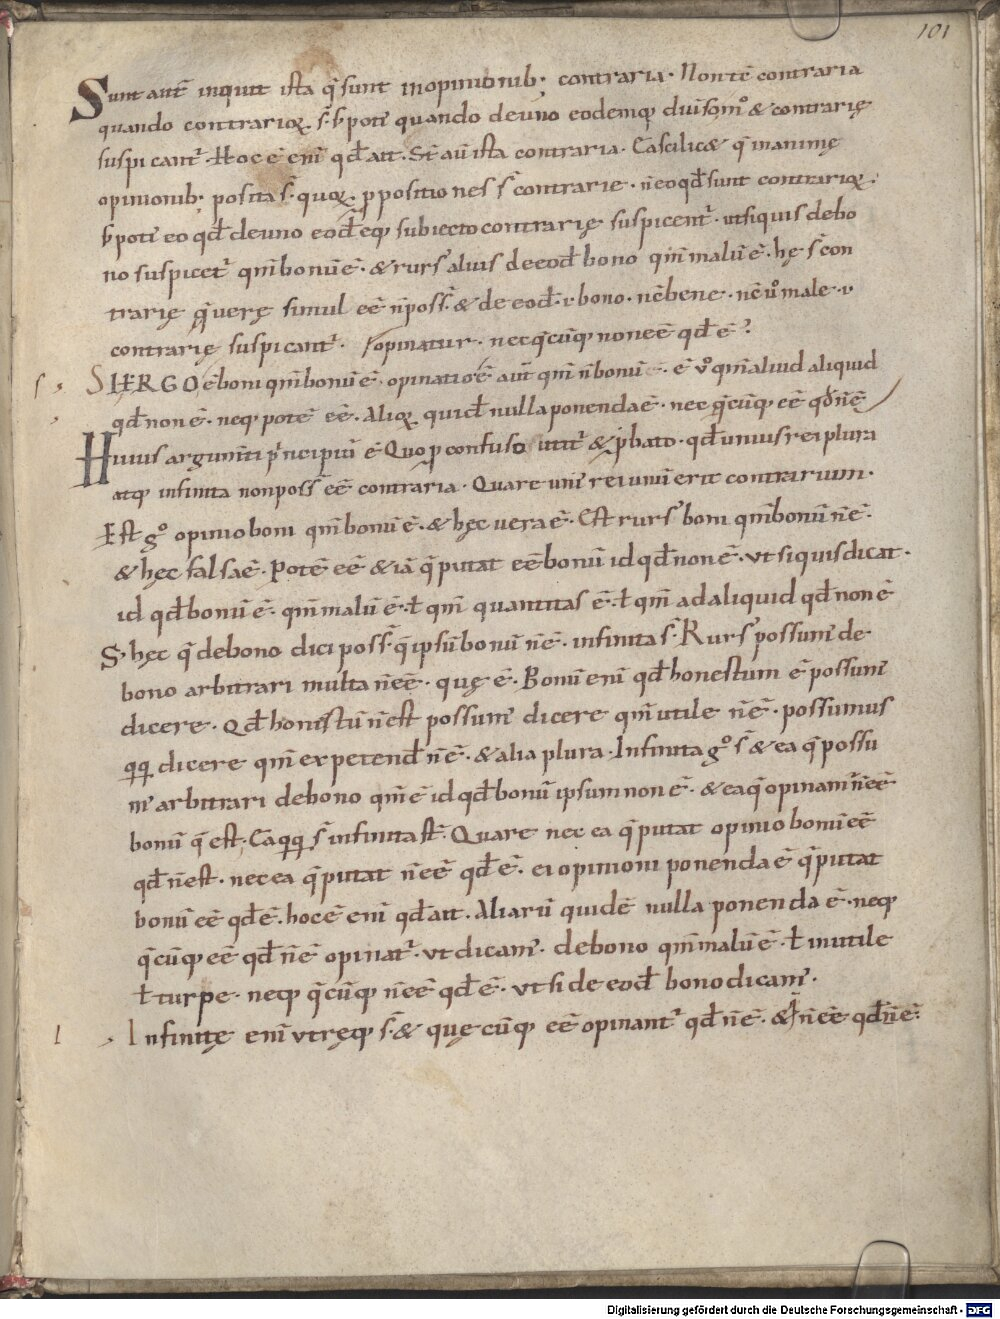 101
Sunt aut̄ inquit ista q̄ sunt in opinionib; contraria. Non tē contraria
quando contrarioꝝ. s̄. s̄ poti quando de uno eodemq; diuiso m̊ & contrarię
suspicant᷑. Hoc ē eni qđ ait. St̄ aū ista contraria. ea scilicet q̄ in animę
opinionib; posita s̄. quoꝝ ꝓpositiones s̄ contrarie. n̄ eo qđ sunt contrarioꝝ.
s̄ poti eo qđ de uno eodēq; subiecto contrarię suspicent᷑. ut si quis de bo
no suspicet᷑ qm̄ bonū ē. & rurs᷒ alius de eođ bono qm̄ malū ē. hę s̄ con
trarię q̄ uerę simul eē n̄ poss̄. & de eođ. i. bono. n̄ bene. n̄ ů male. i.
contrarię suspicant᷑. / opinatur. nec q̄cūq; non eē qđ ē.
SI ERGO ē boni qm̄ bonū ē. opinatio ē aut̄ qm̄ n̄ bonū ē. ē ů qm̄ aliud aliquid
qđ non ē. neq; potē eē. Alioꝝ quiđ nulla ponenda ē. nec q̄cūq; eē qđ n̄ ē
Huius argum̄ti principiū ē Quo ꝑ confuso utit᷑ & ꝓbato. qđ unius rei plura
atq; infinita non poss̄ eē contraria. Quare uni rei unū erit contrarium.
Est g̊ opinio boni qm̄ bonū ē. & hęc uera ē. Est rurs᷒ boni qm̄ bonū n̄ ē.
& hęc falsa ē. Potē eē & iā q̄ putat eē bonū id qđ non ē. ut si quis dicat.
id qđ bonū ē. qm̄ malū ē. ł qm̄ quantitas ē. ł qm̄ ad aliquid qđ non ē
S; hęc q̄ de bono dici poss̄. q̄ ipsū bonū n̄ ē. infinita s̄. Rurs᷒ possum᷒ de
bono arbitrari multa n̄ eē. quę ē. Bonū eni qđ honestum ē possum᷒
dicere. Qđ honestū n̄ est possum᷒ dicere qm̄ utile n̄ ē. possumus
qq; dicere qm̄ expetenđ n̄ ē. & alia plura. Infinita g̊ s̄ & ea q̄ possu
m᷒ arbitrari de bono qm̄ ē id qđ bonū ipsum non ē. & ea q̄ opinam᷒ n̄ eē
bonū q̄ est. Ea qq; s̄ infinita st̄. Quare nec ea q̄ putat opinio bonū eē
qđ n̄ est. nec ea q̄ putat n̄ eē qđ ē. ei opinioni ponenda ē q̄ putat
bonū eē qđ ē. hoc ē eni qđ ait. Aliarū quidē nulla ponenda ē. neq;
q̄cūq; eē qđ n̄ ē opinat᷑. ut dicam᷒. de bono qm̄ malū ē. ł inutile
ł turpe. neq; q̄cūq; n̄ eē qđ ē. ut si de eođ bono dicam᷒.
Infinitę eni utręq; s̄. & quę cūq; eē opinant᷑ qđ n̄ ē. & q̄ n̄ eē qđ n̄ ē.
Digitalisierung gefördert durch die Deutsche Forschungsgemeinschaft - DFG